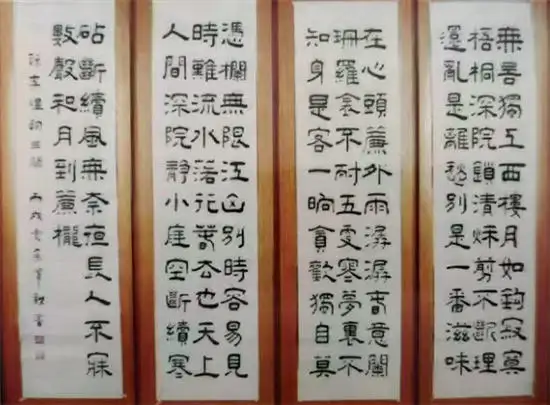 無言獨上西樓月如鉤寂寞
梧桐深院鎖清秋剪不斷理
還亂是離愁別是一番滋味
在心頭簾外雨潺潺春意闌
珊羅衾不耐五更寒夢裏不
知身是客一晌貪歡獨自莫
憑欄無限江山別時容易見
時難流水落花春去也天上
人間深院靜小庭空斷續寒
砧斷續風無奈夜長人不寐
數聲和月到簾櫳
李煜詞三闋 丙戌 書